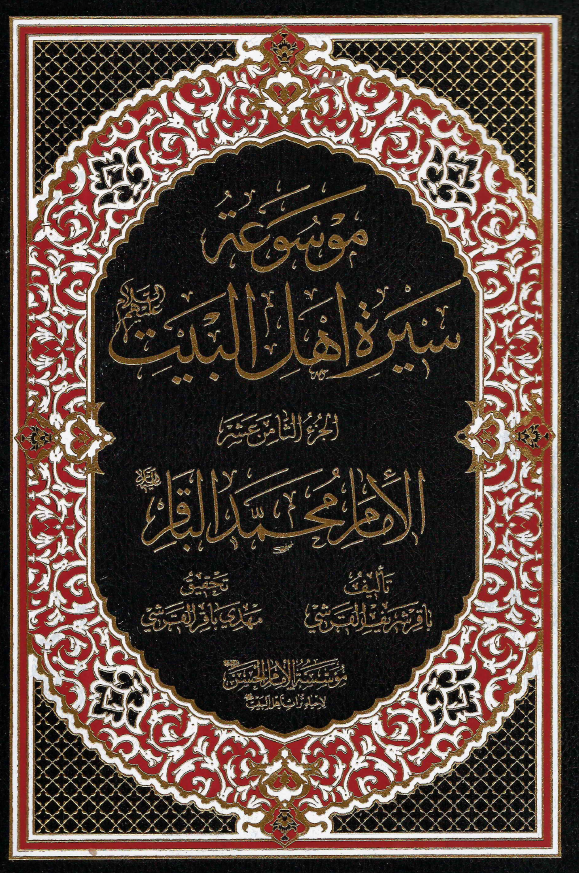 موسوعة
سيرة أهل البيت عليهم السلام
الجزء الثامن عشر
الإمام محمد الباقر عليه السلام
تأليف
باقر شريف القرشي
تحقيق
مهدي باقر القرشي
مؤسسة الإمام الحسن
لإحياء تراث أهل البيت